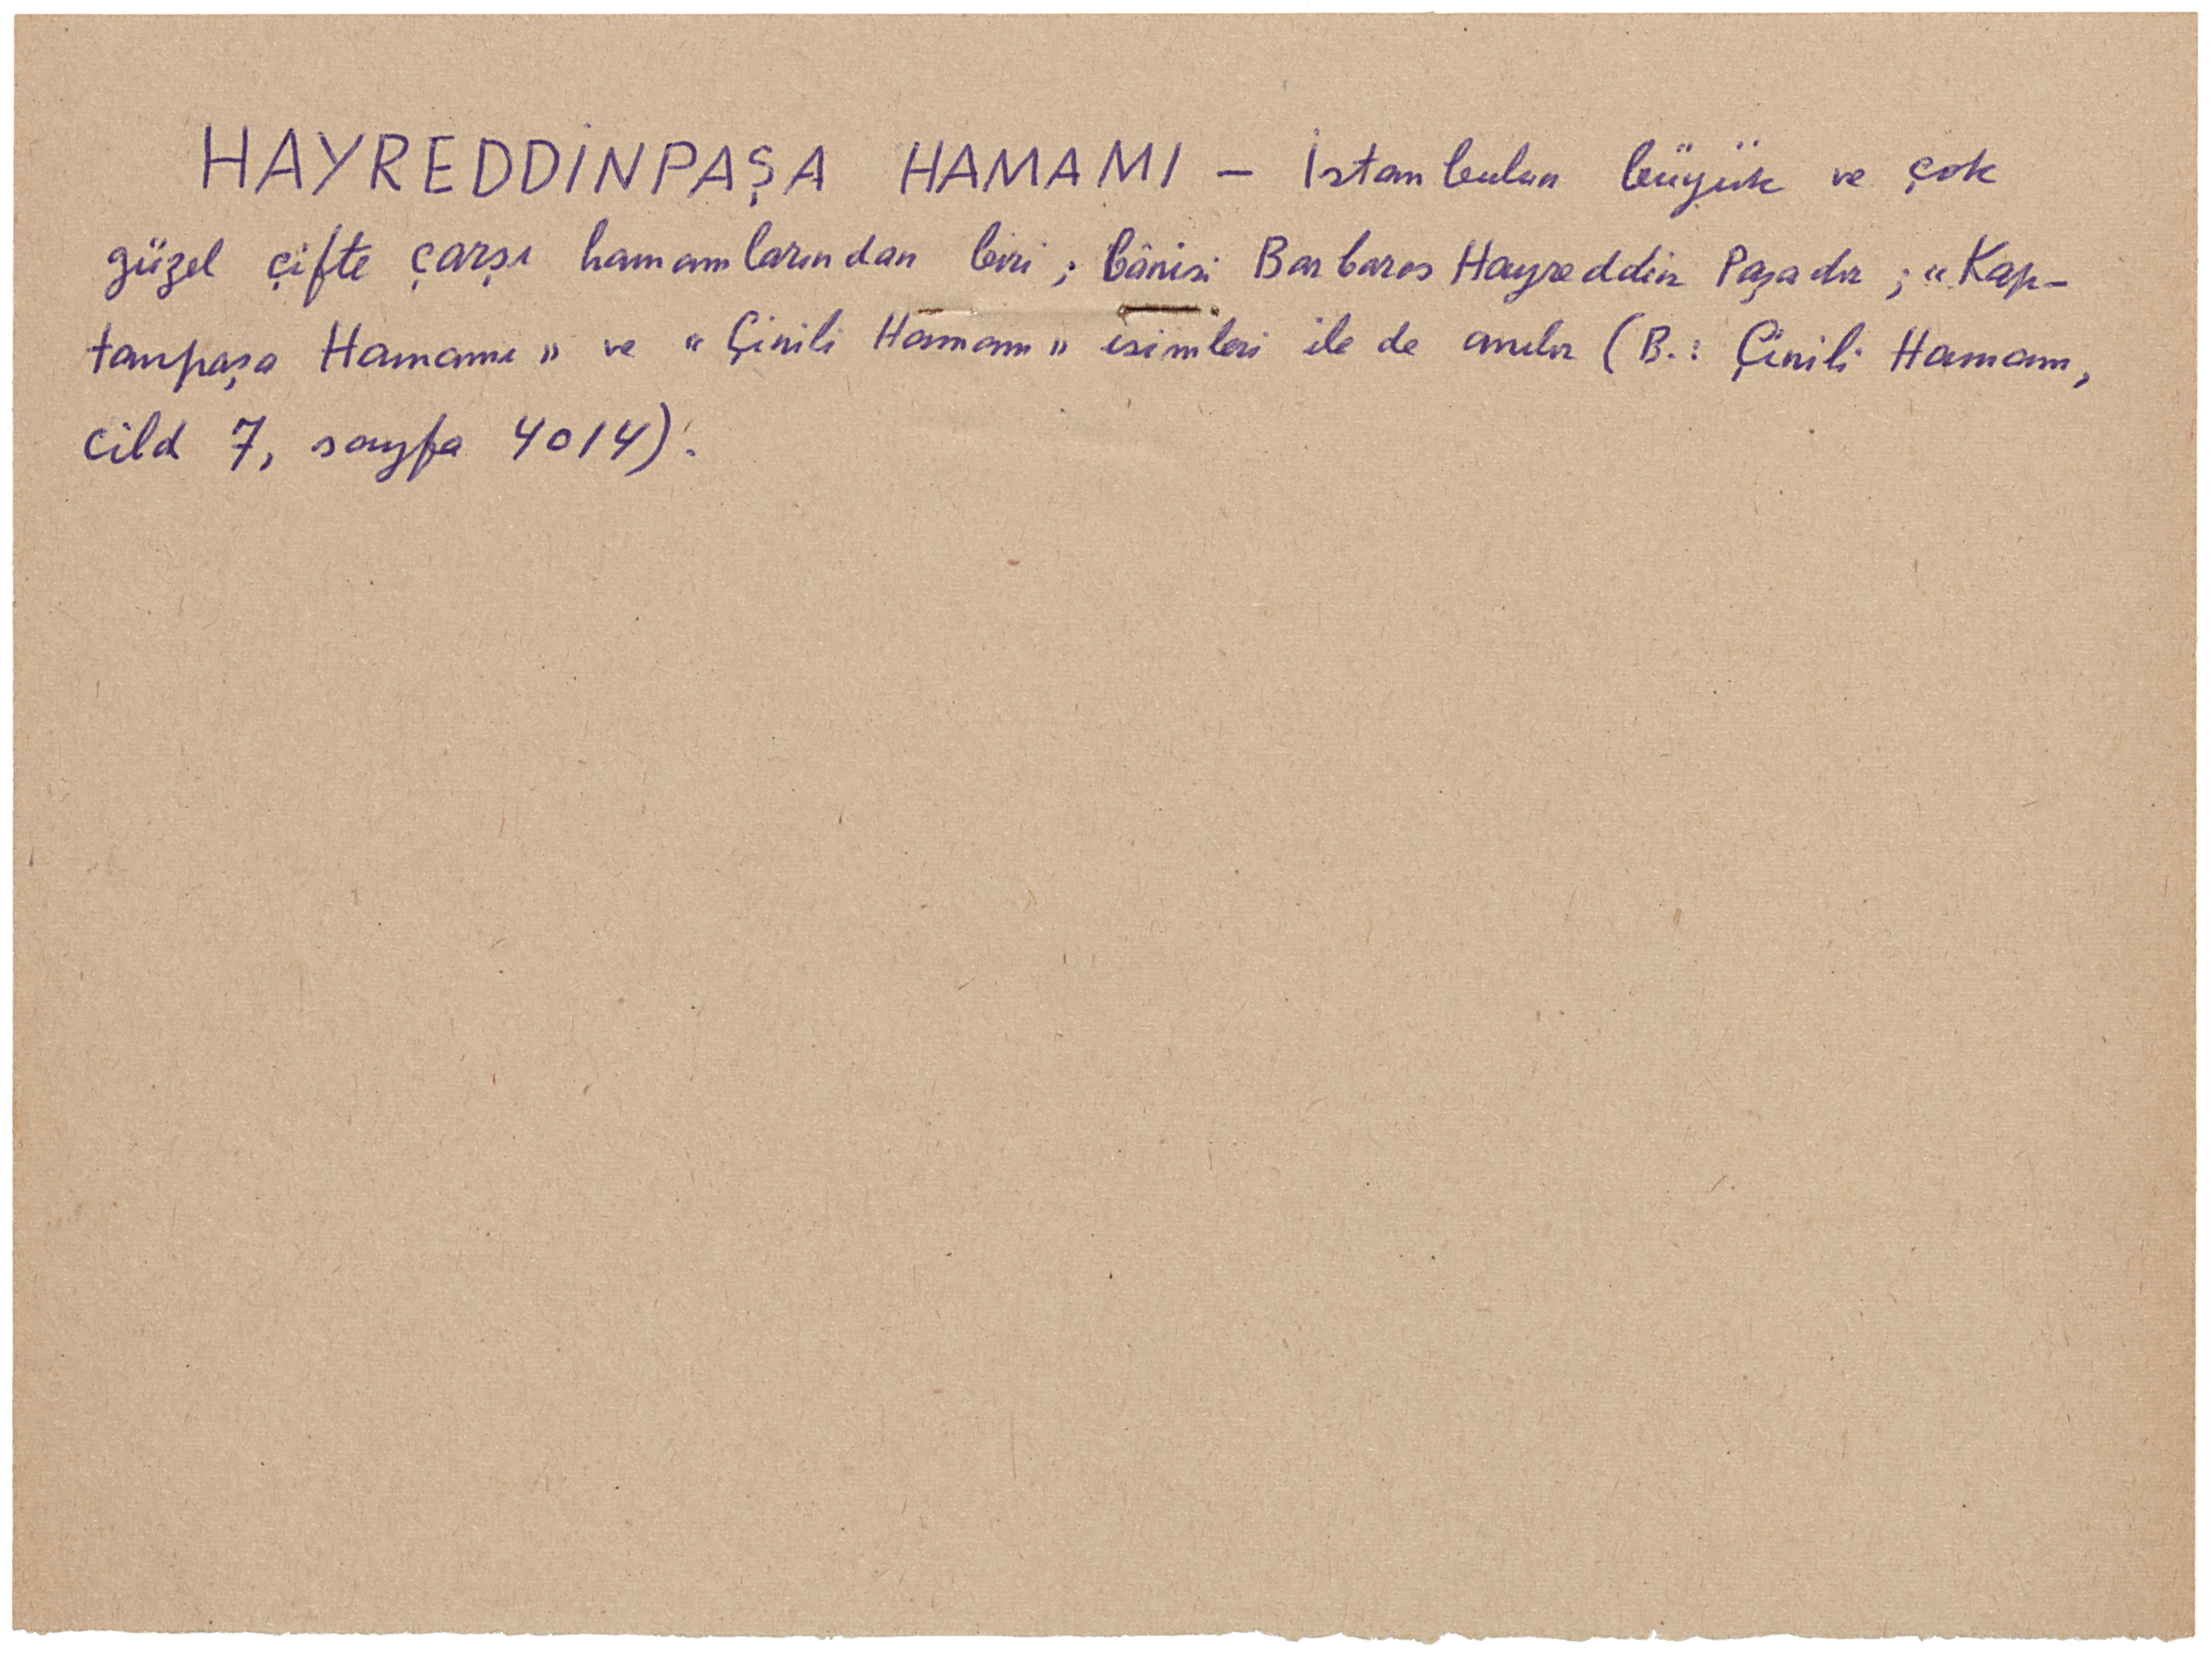 HAYREDDİNPAŞA HAMAMI — İstanbulun büyük ve çok
güzel çifte çarşı hamamlarından biri; bânisi Barbaros Hayreddin Paşadır; «Kap-
tanpaşa Hamamı» ve «Çinili Hamam» isimleri ile de anılır (B.: Çinili Hamam,
cild 7, sayfa 4014).